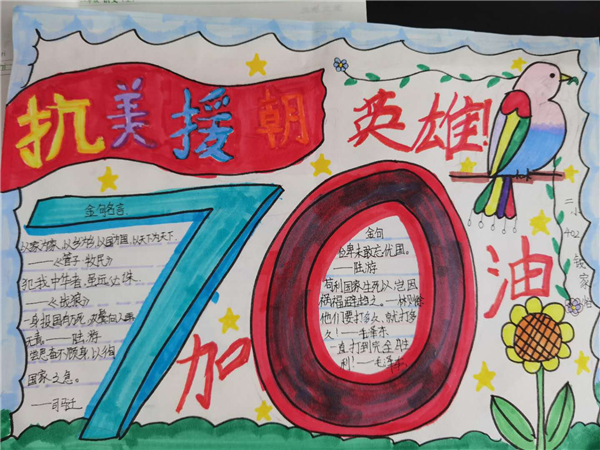 抗美援朝
英雄!
70
加油
金句名言
以家为家,以乡为乡,以国为国,以天下为天下.
——《管子·牧民》
犯我中华者,虽远必诛.
——《
一身报国有万死,
——陆游
常思奋不顾身,以徇
国家之急。
——司马迁
金句
位卑未敢忘忧国。
——陆游
苟利国家生死以,岂因
祸福避趋之。——林则徐
他们要打多久,就打多
久!——毛泽东
一直打到完全胜
利!——毛泽东
二
402
钱